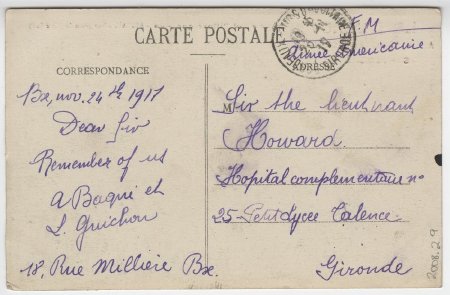 CARTE POSTALE
F.M
Armée Américaine
CORRESPONDANCE
ADRESSE
Bx, nov. 24th 1917
Dear Sir
Remember of us
A Baqui et
L. Guichon
18, Rue Millière Bx.
M Sir the lieutnant
Howard.
Hopital complementaire no
25 - Petit Lycée Talence.
Gironde
2008.2.9